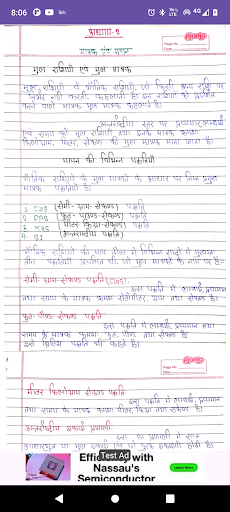 8:06
4G
Page No.
Date
अध्याय-2
मात्रक एवं मापन
मूल राशियाँ एवं मूल मात्रक
मूल राशियाँ वे भौतिक राशियाँ, जो किसी अन्य राशि पर
निर्भर नहीं करती, कहलाती है। इन राशियों को
करने वाले मात्रक मूल मात्रक कहलाते है।
स्तर पर
एवं समय को मूल राशियाँ तथा इनके मात्रक क्रमशः
किलोग्राम, मीटर, सेकण्ड को मूल मात्रक माना जाता है।
मापन की विभिन्न पद्धतियाँ
भौतिक राशियों के मूल मात्रक के आधार पर निम्न प्रमुख
मात्रक पद्धतियाँ है।
1. CGS (सेमी-ग्राम-सेकण्ड) पद्धति
2. FPS (फुट-पाउण्ड-सेकण्ड) पद्धति
3. MKS (मीटर किग्रा-सेकण्ड) पद्धति
4. SI (अन्तर्राष्ट्रीय) पद्धति
भौतिक राशियों की माप तौल में विभिन्न राष्ट्रों में
तीन पद्धतियाँ प्रचलित थी, जो मूल मात्रकों के नाम पर है-
सेमी-ग्राम-सेकण्ड पद्धति (CGS):
इस पद्धति में लम्बाई, द्रव्यमान
तथा समय के मात्रक क्रमशः सेंटीमीटर, ग्राम तथा सेकण्ड है।
फुट-पौण्ड-सेकण्ड पद्धति
इस पद्धति में लम्बाई, द्रव्यमान तथा
समय के मात्रक क्रमशः फुट, पौण्ड तथा सेकण्ड है।
इसे ब्रिटिश पद्धति भी कहते है।
Page No.
Date
मीटर किलोग्राम सेकण्ड पद्धति
इस पद्धति में लम्बाई, द्रव्यमान
तथा समय के मात्रक क्रमशः मीटर, किग्रा तथा सेकण्ड है।
अन्तर्राष्ट्रीय इकाई प्रणाली-
इस प्रणाली में सात
मूल इकाई एवं दो पूरक इकाइयाँ होती है।
Test Ad
Effic with
Nassau's
Semiconductor
Learn More